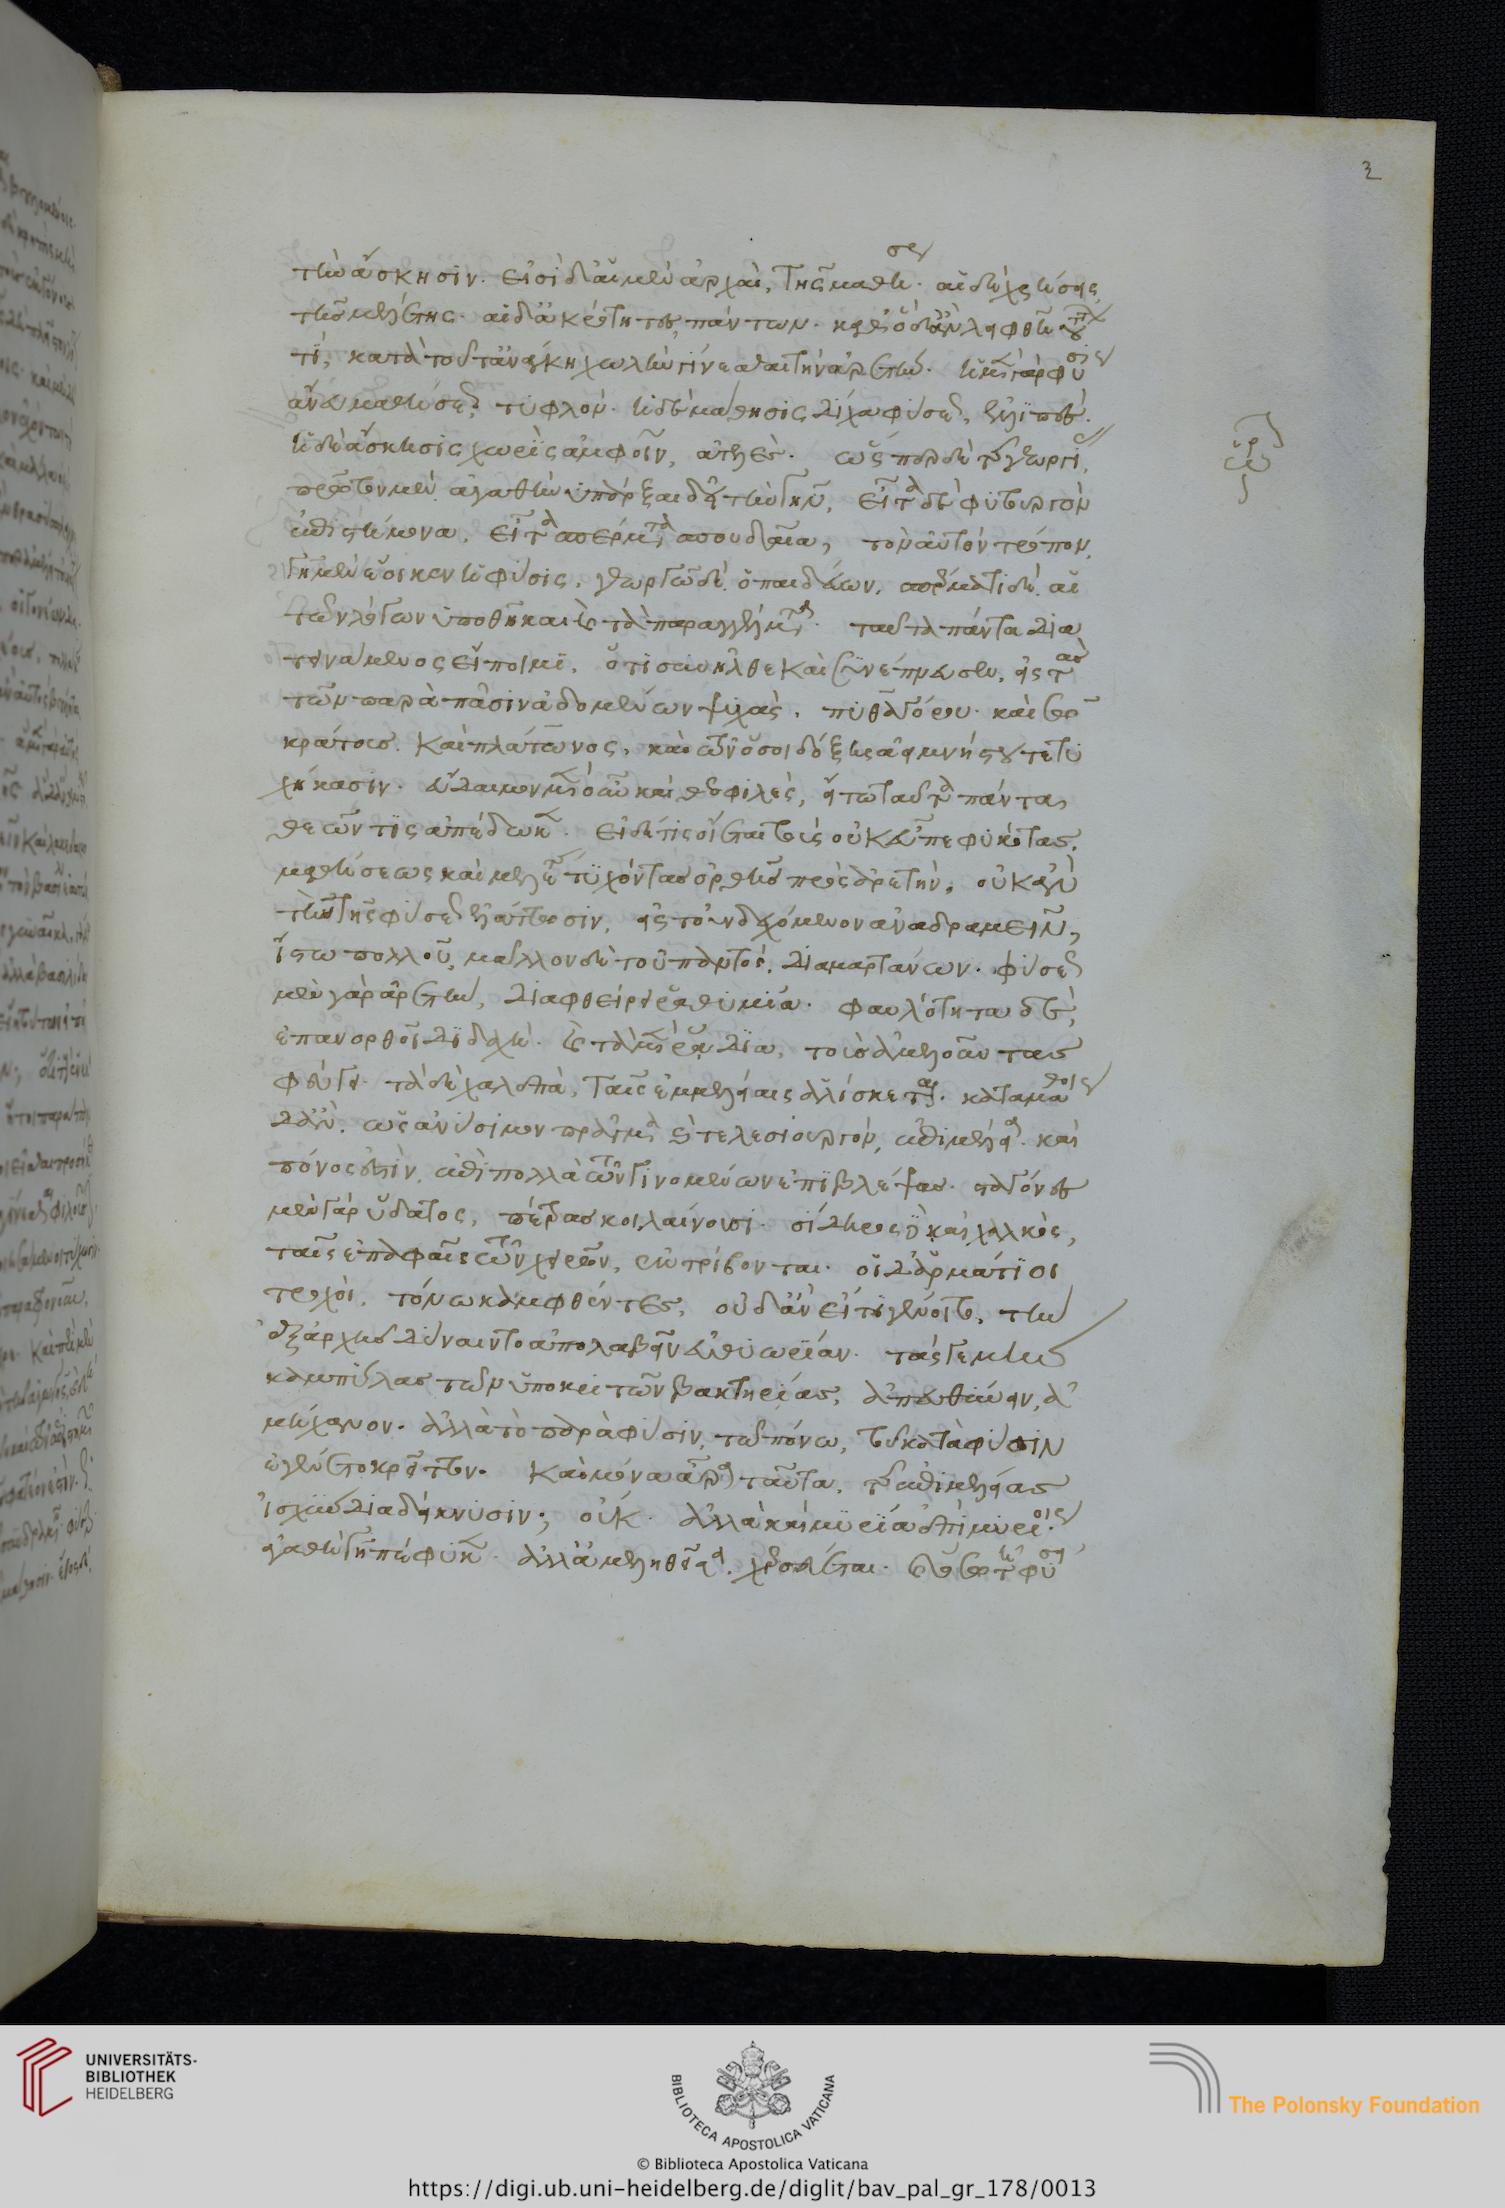 τὴν ἄσκησιν. εἰσὶ δ᾽ αἱ μὲν ἀρχαὶ, τῆς μαθήσεως. αἱ δὲ χρήσεις,
τῆς μελέτης. αἱ δ᾽ ἀκρότητες, πάντων. καθ᾽ ὃ δ᾽ ἂν λειφθῇ
τι, κατὰ τοῦτ᾽ ἀνάγκη χωλὴν γίνεσθαι τὴν ἀρετήν. ἡ μὲν γὰρ φύσις
ἄνευ μαθήσεως, τυφλόν. ἡ δὲ μάθησις δίχα φύσεως, ἐλλιπές.
ἡ δὲ ἄσκησις χωρὶς ἀμφοῖν, ἀτελές. ὥσπερ δὲ τῆς γεωργίας,
πρῶτον μὲν ἀγαθὴν ὑπάρξαι δεῖ τὴν γῆν, εἶτα δὲ φυτουργὸν
ἐπιστήμονα, εἶτα σπέρματα σπουδαῖα, τὸν αὐτὸν τρόπον,
γῇ μὲν ἔοικεν ἡ φύσις, γεωργῷ δὲ ὁ παιδεύων, σπέρματι δὲ αἱ
τῶν λόγων ὑποθῆκαι καὶ τὰ παραγγέλματα. ταῦτα πάντα δια
τεινάμενος εἴποιμι, ὅτι συνῆλθε καὶ συνέπνευσεν, εἰς τὰς
τῶν παρὰ πᾶσιν ἀδομένων ψυχὰς, πυθαγόρου καὶ σω
κράτους. καὶ πλάτωνος, καὶ τῶν ὅσοι δόξης ἀειμνήστου τετυ
χήκασιν. εὔδαιμον μὲν οὖν καὶ θεοφιλὲς, εἴ τω ταῦτα πάντα,
θεῶν τις ἀπέδωκεν. εἰ δέ τις οἴεται τοὺς οὐκ εὖ πεφυκότας,
μαθήσεως καὶ μελέτης τυχόντας ὀρθῆς πρὸς ἀρετὴν, οὐκ ἂν
τὴν τῆς φύσεως ἐλάττωσιν, εἰς τοὐνδεχόμενον ἀναδραμεῖν,
ἴστω πολλοῦ, μᾶλλον δὲ τοῦ παντός, διαμαρτάνων. φύσεως
μὲν γὰρ ἀρετὴν, διαφθείρει ῥαθυμία. φαυλότητα δὲ,
ἐπανορθοῖ διδαχή. καὶ τὰ μὲν ῥάδια, τοὺς ἀμελοῦντας
φεύγει. τὰ δὲ χαλεπὰ, ταῖς ἐπιμελείαις ἁλίσκεται. καταμάθοις
δ᾽ ἂν, ὡς ἀνύσιμον πρᾶγμα καὶ τελεσιουργὸν, ἐπιμέλεια καὶ
πόνος ἐστὶν, ἐπὶ πολλὰ τῶν γινομένων ἐπιβλέψας. σταγόνες
μὲν γὰρ ὕδατος, πέτρας κοιλαίνουσι. σίδηρος δὲ καὶ χαλκὸς,
ταῖς ἐπαφαῖς τῶν χειρῶν, ἐκτρίβονται. οἱ δ᾽ ἁρμάτιοι
τροχοὶ, πόνω καμφθέντες, οὐδ᾽ ἂν εἴ τι γένοιτο, τὴν
ἐξ ἀρχῆς δύναιντο ἀπολαβεῖν εὐθυωρίαν. τάς γε μὴν
καμπύλας τῶν ὑποκριτῶν βακτηρίας, ἀπευθύνειν, ἀ
μήχανον. ἀλλὰ τὸ παρὰ φύσιν, τῶ πόνω, τοῦ κατὰ φύσιν
ἐγένετο κρεῖττον. καὶ μόνα ἆρα ταῦτα, τῆς ἐπιμελείας
ἰσχὺν διαδείκνυσιν; οὐκ. ἀλλὰ καὶ μυρία ἐπὶ μυρίοις.
ἀγαθὴ γῆ πέφυκεν. ἀλλ᾽ ἀμεληθεῖσα, χερσεύεται. καὶ